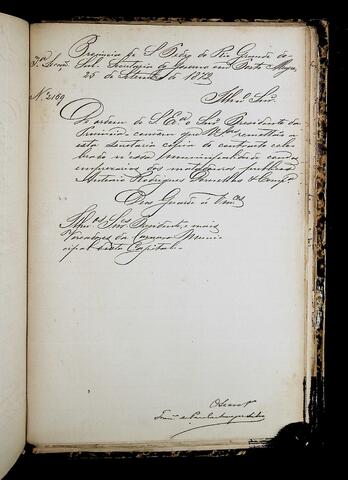 Provincia de S. Pedro do Rio Grande do
3ª Secção Sul. Secretaria do Governo em Porto Alegre,
25 de Setembro de 1873
Nº 2159
Illmos Snrs
De ordem de S. Exª o Snr Presidente da
Provincia convem que Vmces remettão a
esta secretaria copia do contracto cele
brado n'essa municipalidade com os
emprezarios dos matadouros publicos
Antonio Rodrigues & Compª
Deus Guarde a Vmces
Illmos Snrs Presidente e mais
Vereadores da Camara Muni
cipal desta Capital.
O Secrº